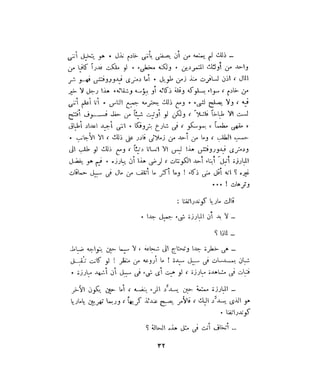 ـ ذلك لم يمنعه من أن يصفني بأنني خادم نذل ٠ هو يتخيل أنني
واحد من أولئك المتمردين ٠ ولكنه مخطىء ٠ لو ملكت قدراً كافيا من
المال ، اذن لسافرت منذ زمن طويل ٠ أما دمترى فيدوروفتش فهو شر
من خادم ، سواء بسلوكه وقلة ذكائه أو ببؤسه وشقائه ٠ هذا رجل لا خير
فيه ، ولا يصلح لشىء ٠ ومع ذلك يحترمه جميع الناس ٠ أنا أعلم أنني
لست الا طباخاً فاشلاً ، ولكن لو أوتيت شيئاً من حظ فسوف أفتتح
مقهى مطعماً ، بموسكو ، في شارع بتروفكا ٠ انني أجيد اعداد أطباق
حسب الطلب ، وما من أحد من زملائي قادر على ذلك ، الا الأجانب ٠
ودمترى فيدوروفتش هذا ليس الا انسانا دنيئاً ، ومع ذلك لو طلب الى
المبارزة أنبل أبناء أحد الكونتات ، لرضى هذا أن يبارزه ٠ فيم هو يفضل
غيره ؟ انه أقل منى ذكاء ! وما أكثر ما أتلف من مال في سبيل حماقات
وترهات ! ٠٠٠
قالت ماريا كوندراتفنا :
ـ لا بد أن المبارزة شىء جميل جدا ٠
ـ لماذا ؟
ـ هى خطرة جدا وتحتاج الى شجاعة ، لا سيما حين يتواجه ضباط
شبان بمسدسات في سبيل سيدة ! ما أروعه من منظر ! لو كانت تُقبل
فتيات في مشاهدة مبارزة ، لو هبت أى شىء في سبيل أن أشهد مبارزة ٠
ـ المبارزة ممتعة حين يسدد المرء بنفسه ، أما حين يكون الآخر
هو الذي يسدد اليك ، فالأمر يصبح عندئذ كريهاً ، وربما تهربين ياماريا
كوندراتفنا ٠
ـ أتخاف أنت في مثل هذه الحالة ؟
٣٢